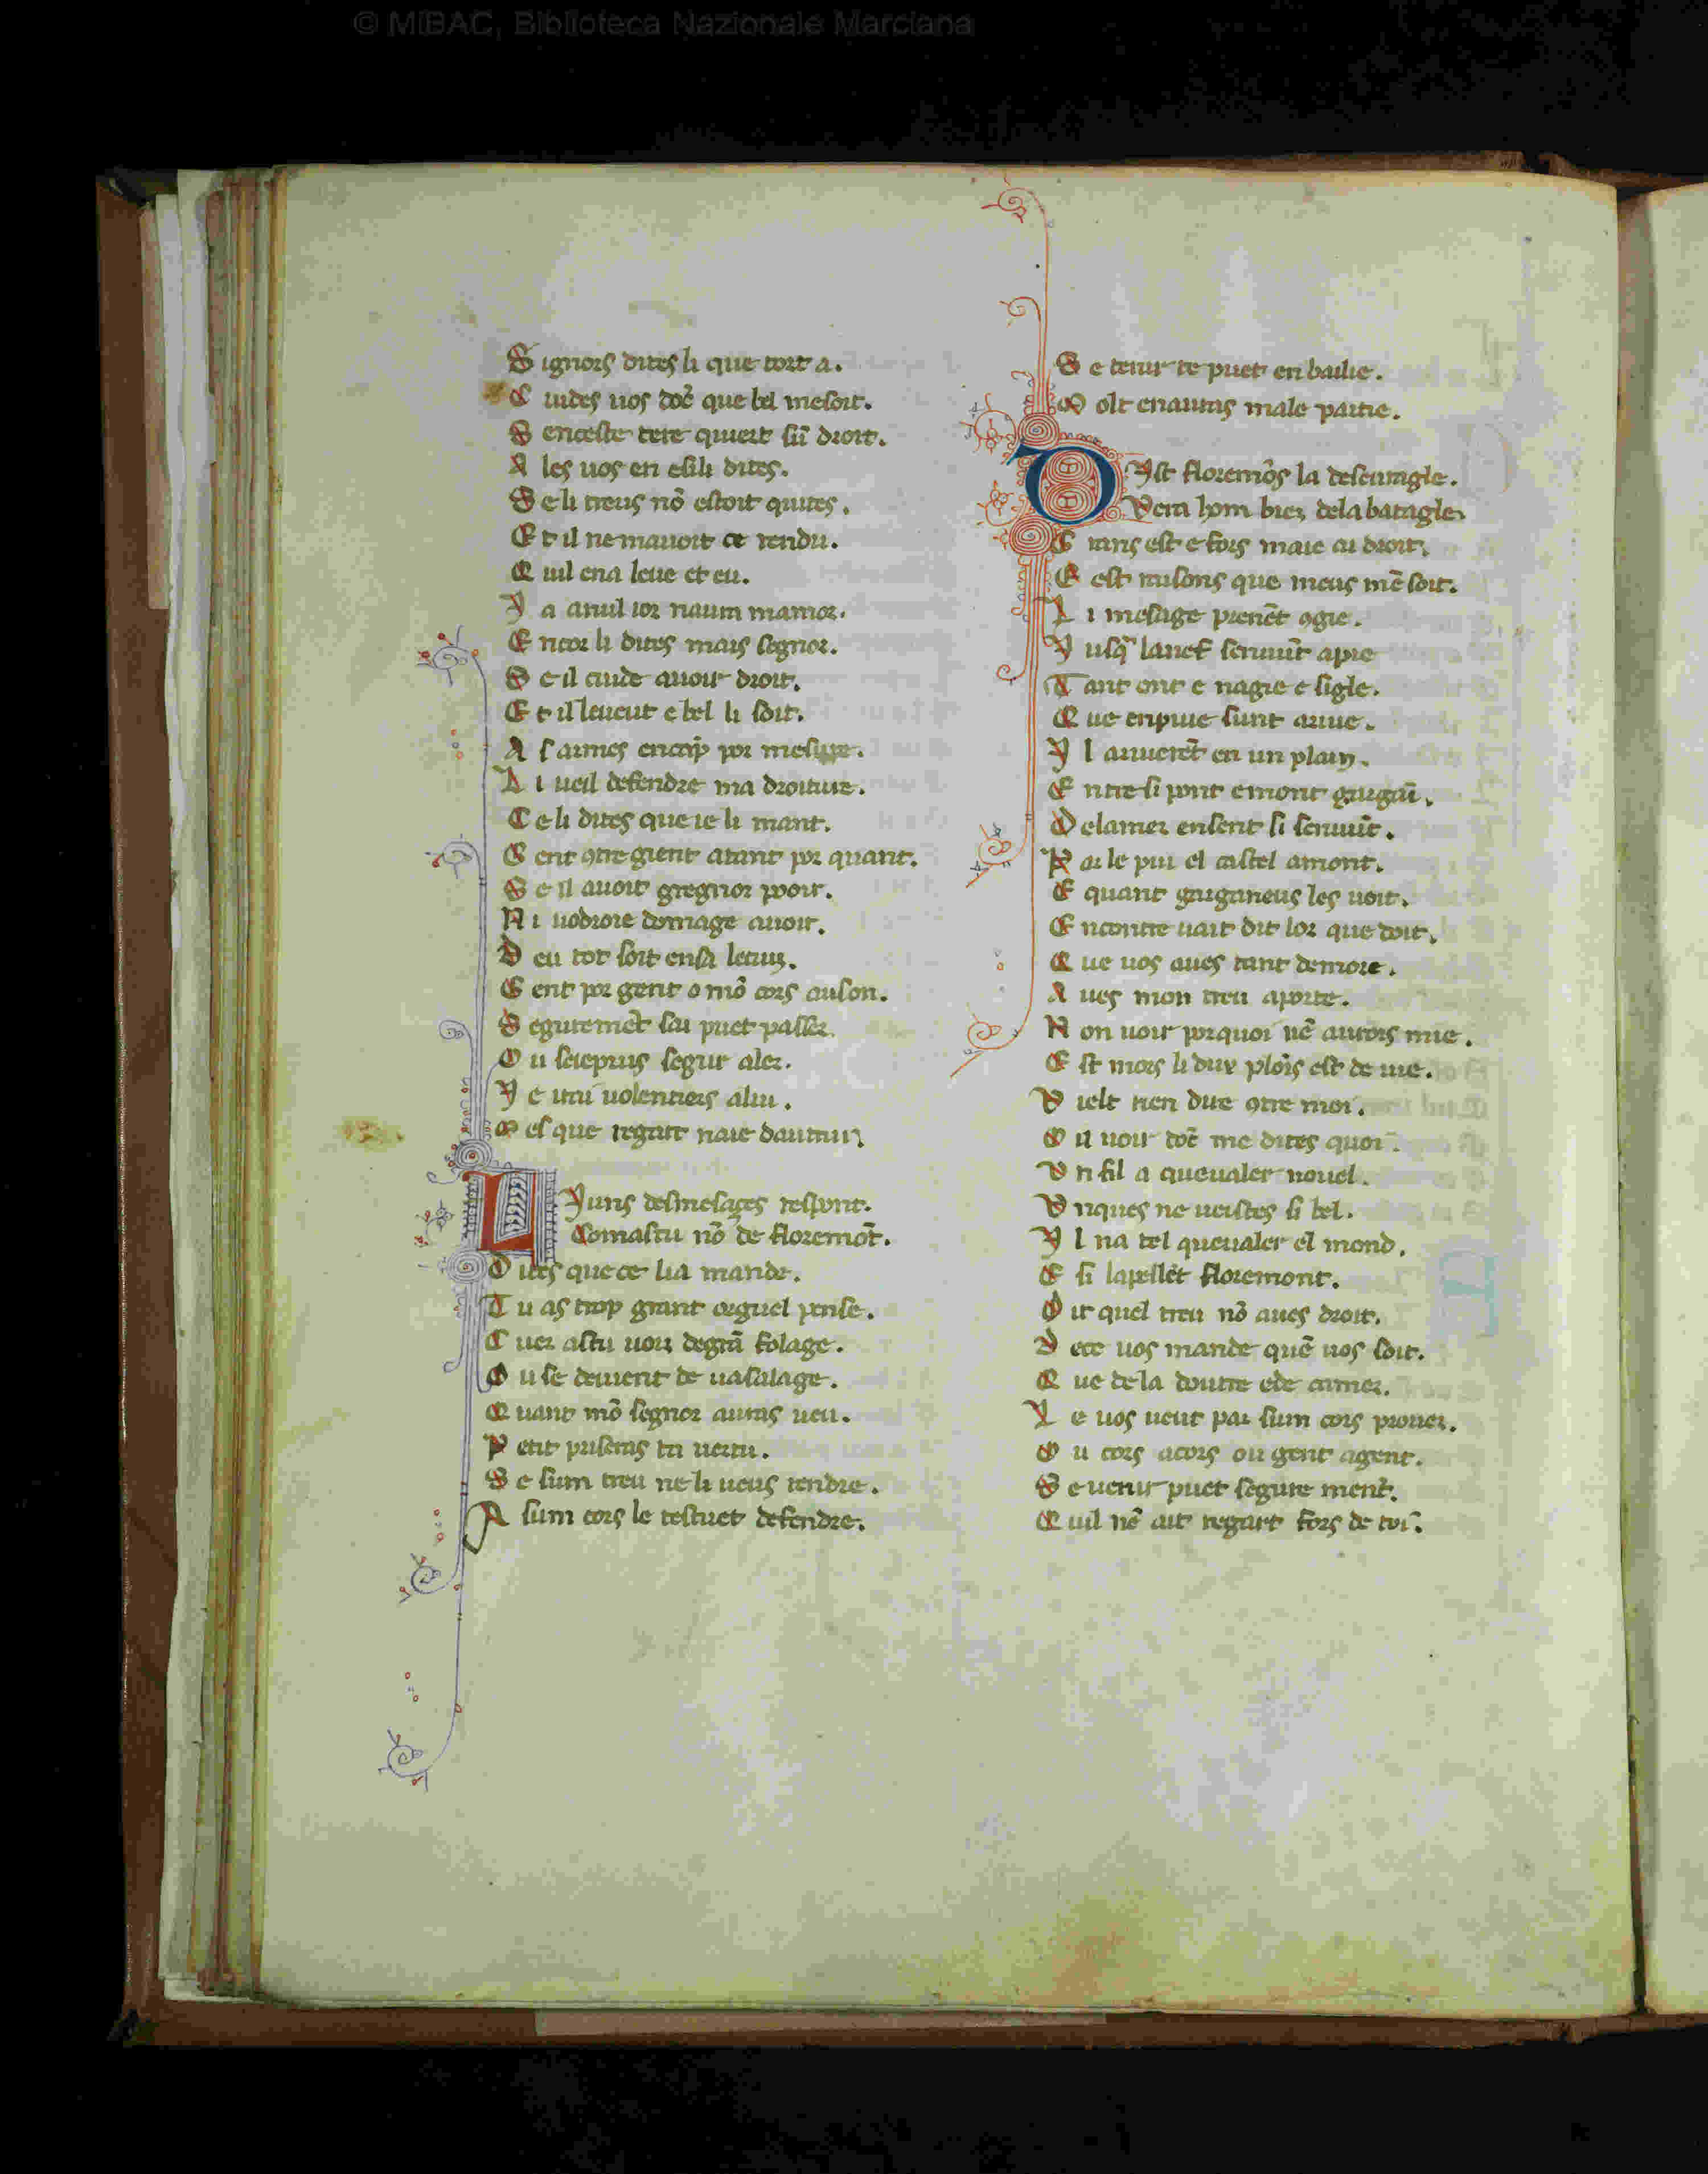 © MiBAC, Biblioteca Nazionale Marciana
S ignors dites li que tort a.
C uides uos dōc que bel mesoit.
S enceste tere quiert sū droit.
A les uos en esili dites.
S e li treus nō estoit quites.
E t il ne mauoit ce rendu.
Q uil ena leue et eu.
Y a anuil ior naum mamor.
E ncor li dites mais segnor.
S e il cuide auoir droit.
E t il leueut e bel li soit.
A s armes encāp por mesure.
L i ueil defendre ma droiture.
C e li dites que ie li mant.
G ent ꝯtre gient atant por quant.
S e il auoit gregnor pooir.
N i uodroie domage auoir.
D eu tot soit ensa
G ent por gent o mō cors auson.
S eguremēt sai puet passer.
O u seieprus segur aler.
Y e uolentiers
M es que regart naie dautrui
L Yuns desmesages respont.
Comastu nō de floremōt.
D ites quece lia mande.
T u as trop grant orguel pense.
C uer astu uoir degrā folage.
O u se deuient de uasalage.
Q uant mō segnor auras ueu.
P etit priseras ta uertu.
S e sum treu ne li ueus rendre.
A sum cors le testuet defendre.
S e tenir te puet en bailie.
M olt enauras male partie.
D Ist floremōs la
hom de la batagle
G rans est e fors maie ai droit.
E est raisons que meus mē soit.
L i mesage prenēt ꝯgie.
Y usq̄ lanef
T ant ont e nagie e sigle.
Q ue enpuie sunt ariue.
Y l ariuerēt en un plain.
E ntre si pont emont gargaū.
D elamer ensent si
P ar le pui el castel amont.
E quant garganeus les uoit.
E ncontre uait dit lor que doit.
Q ue uos aues tant demore.
A ues mon treu aporte.
N on uoir porquoi nē aurois mie.
E st mors li dux plois est de uie.
V ielt rien dire ꝯtre moi.
O il uoir dōc me dites quoi.
V n fil a queualer nouel.
V nques ne ueistes si bel.
Y l na tel queualer el mond.
E si lapellēt floremont.
D it quel treu nō aues droit.
D ece uos mande quē uos soit.
Q ue de la doutre ede
L e uos ueut par sum cors prouer.
O u cors acors ou gent agent.
S e uenir puet segure ment.
Q uil nē ait regart fors de toi.